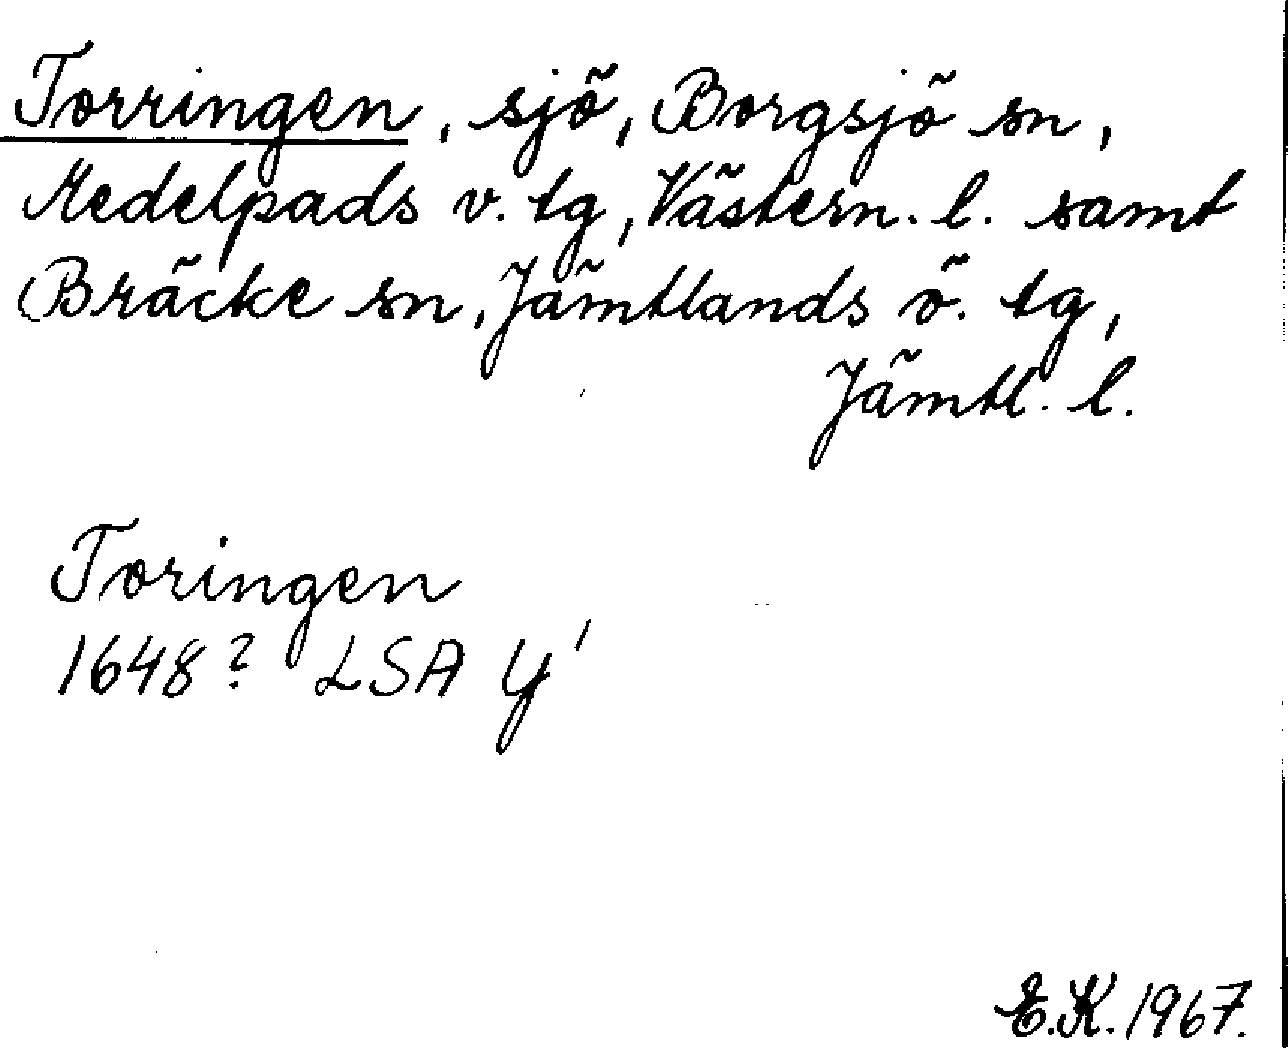 Torringen, sjö, Borgsjö sn,
Medelpads v. tg, Västern. l. samt
Bräcke sn, Jämtlands ö. tg,
Jämtl. l.
Toringen
1648? LSA Y'
E.K. 1967.